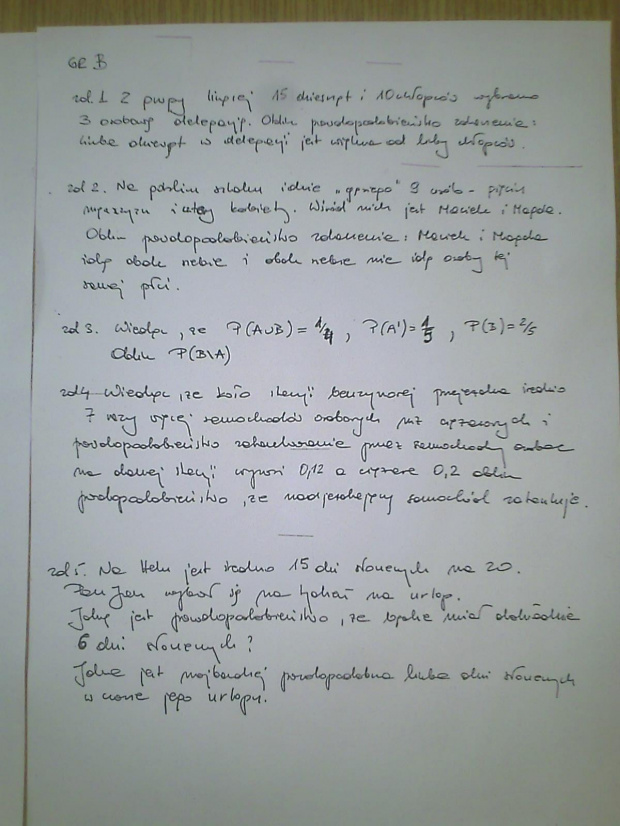 GR B
zad. 1 Z grupy liczącej 15 dziewcząt i 10 chłopców wybrano
3 osobową delegację. Oblicz prawdopodobieństwo zdarzenia:
liczba dziewcząt w delegacji jest większa od liczby chłopców.
zad 2. Na polskim szlaku idzie „gęsiego" 9 osób - pięciu
mężczyzn i cztery kobiety. Wśród nich jest Maciek i Magda.
Oblicz prawdopodobieństwo zdarzenia: Maciek i Magda
idą obok siebie i obok siebie nie idą osoby tej
samej płci.
zad 3. Wiedząc, że P(A∪B) = 1/4, P(A') = 1/5, P(B) = 2/5
Oblicz P(B\A)
zad 4 Wiedząc, że koło stacji benzynowej przejeżdża średnio
7 razy więcej samochodów osobowych niż ciężarowych i
prawdopodobieństwo zatankowania przez samochody osobowe
na danej stacji wynosi 0,12 a ciężarowe 0,2 oblicz
prawdopodobieństwo, że nadjeżdżający samochód zatankuje.
zad 5. Na Helu jest średnio 15 dni słonecznych na 20.
Pan Jan wybrał się na tydzień na urlop.
Jakie jest prawdopodobieństwo, że będzie miał dokładnie
6 dni słonecznych?
Jaka jest najbardziej prawdopodobna liczba dni słonecznych
w czasie jego urlopu.